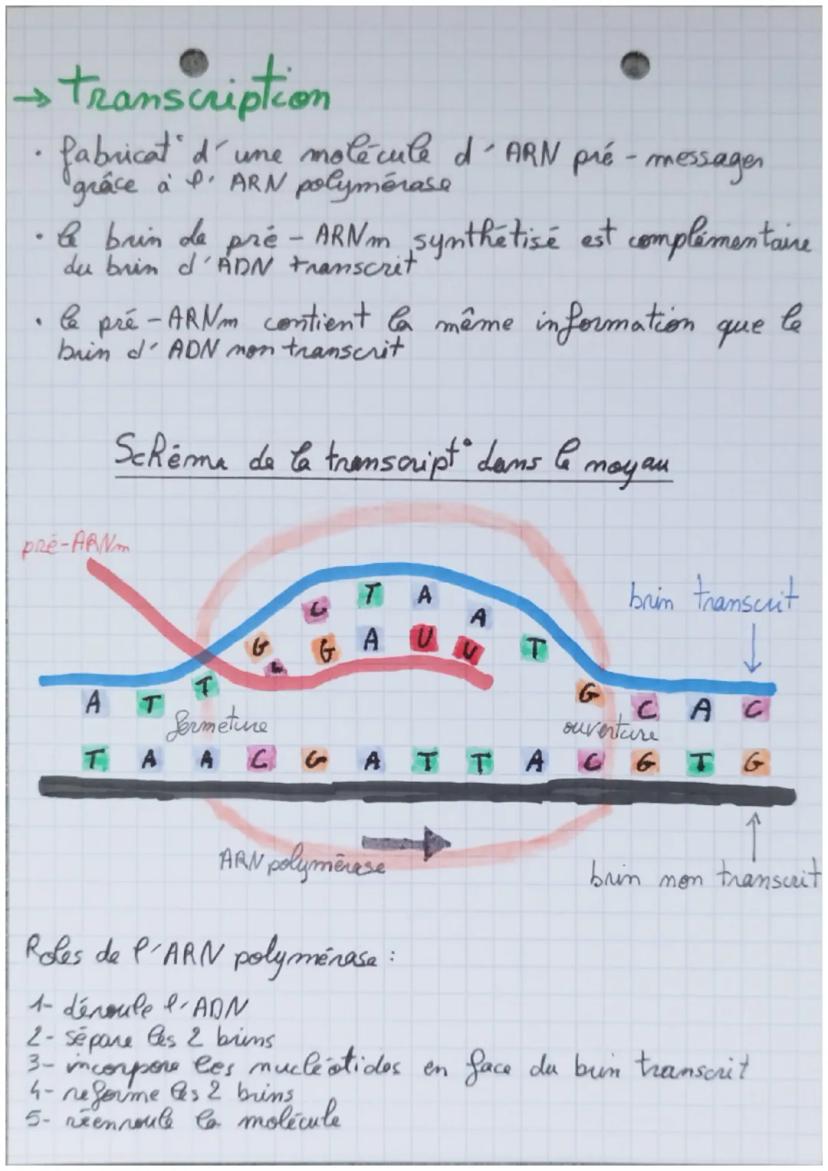 → Transcription
• fabricat° d'une molécule d'ARN pré-messager
grâce à l'ARN polymérase
• le brin de pré-ARNm synthétisé est complémentaire
du brin d'ADN transcrit
• le pré-ARNm contient la même information que le
brin d'ADN non transcrit
Schéma de la transcript° dans le noyau
pré-ARNm
brin transcrit
C T A A
G G A U U T
C
A T T G C A C
fermeture ouverture
T A A C G A T T A C G T G
ARN polymérase
brin non transcrit
Roles de l'ARN polymérase :
1- déroule l'ADN
2- sépare les 2 brins
3- incorpore les nucléotides en face du brin transcrit
4- reforme les 2 brins
5- réenroule la molécule